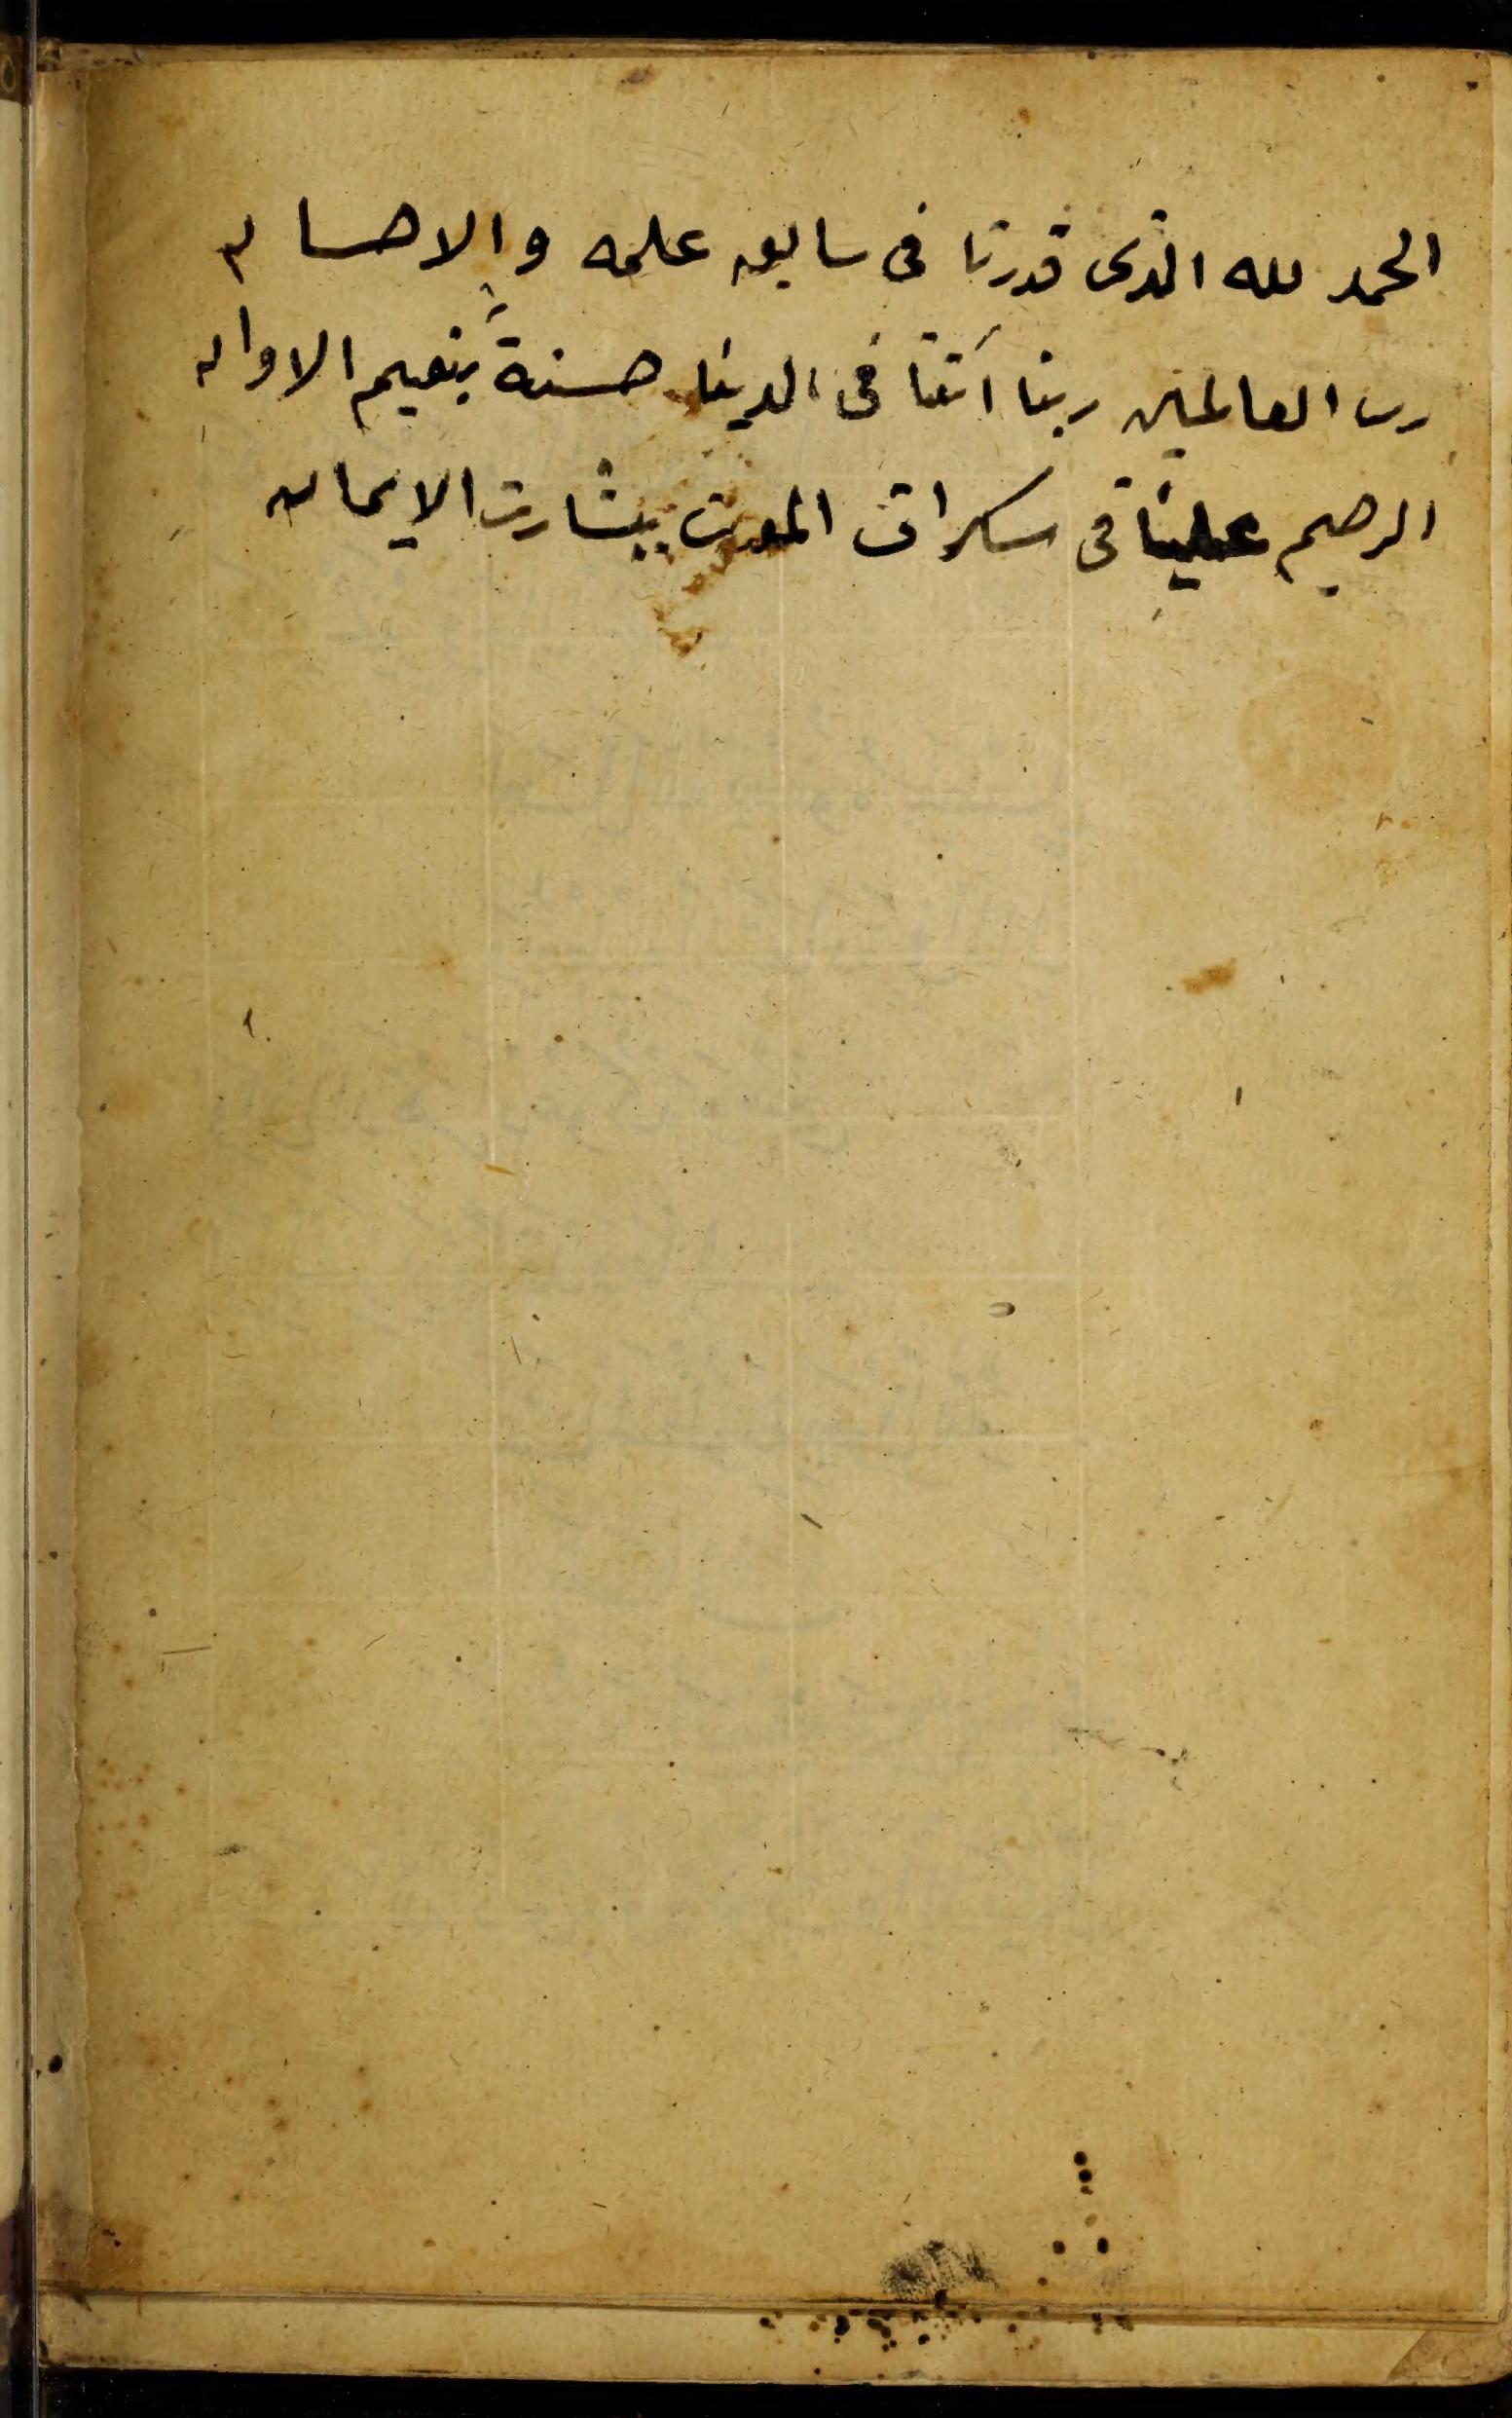 الحمد لله الذى قدرنا فى سابق علمه والاحسان
رب العالمين ربنا آتنا فى الدينا حسنةً بنعيم الاوان
الرحيم علينا فى سكرات الموت ببشارت الايمان